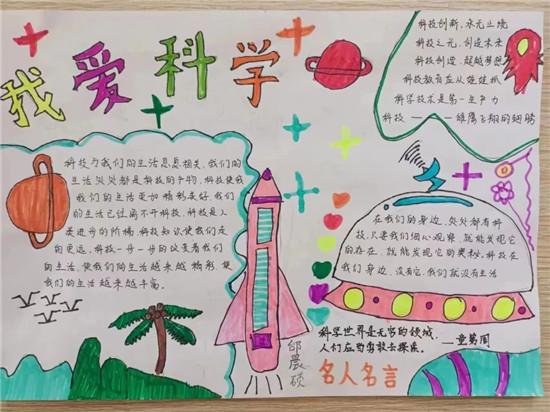 我爱科学
科技创新，永无止境
科技之光，创造未来
科技创造，超越梦想
科技教育应从娃娃抓
科学技术是第一生产力
科技——雄鹰飞翔的翅膀
科技与我们的生活息息相关，我们的
生活处处都是科技的产物，科技使我
我们的生活更加精彩美好，我们
的生活已经离不开科技，科技是人
类进步的阶梯，科技知识使我们走
向更远，科技一步一步的改变着我们
的生活，使我们的生活越来越精彩，使
我们的生活越来越丰富。
在我们的身边，处处都有科
技，只要我们细心观察，就能发现它
的存在，就能发现它的奥秘，科技在
我们身边，没有它，我们就没有生活
科学世界是无穷的领域，
人们应当勇敢去探索。
——童第周
名人名言
晨硕